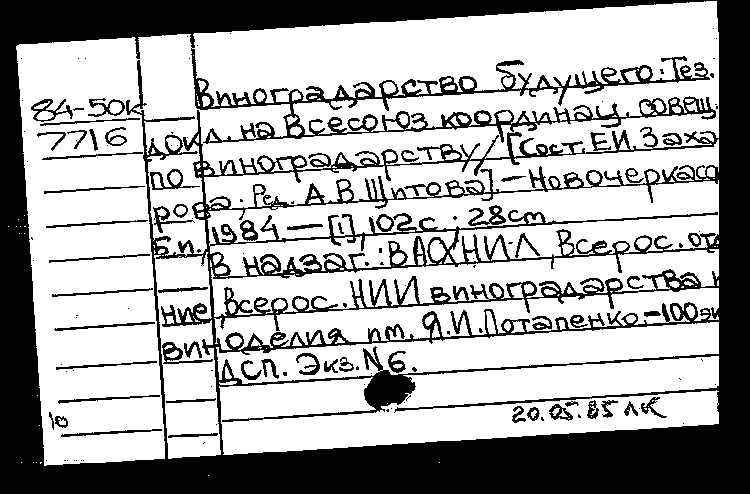 Виноградарство будущего: Тез.
84-50к
докл. на Всесоюз. координац. совещ.
7716
по виноградарству / [Сост. Е.И. Заха
рова; Ред. А.В. Щитова]. — Новочеркасс
Б.п., 1984. — [1], 102 с.; 28 cm.
В надзаг.: ВАСХНИЛ, Всерос. отд
ние, Всерос. НИИ виноградарства и
виноделия им. Я.И. Потапенко. — 100 эк
ДСП. Экз. N 6.
10
20.05.85 ЛК